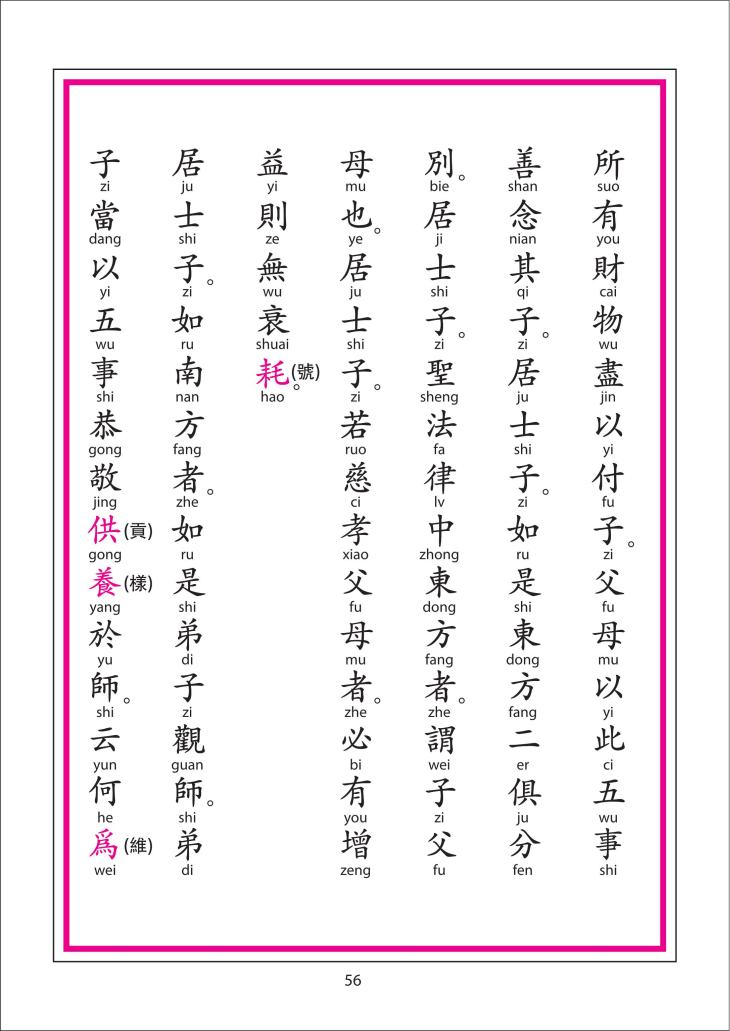 所有財物盡以付子。父母以此五事
suo you cai wu jin yi fu zi fu mu yi ci wu shi
善念其子。居士子。如是東方二俱分
shan nian qi zi ju shi zi ru shi dong fang er ju fen
別。居士子。聖法律中東方者。謂子父
bie ji shi zi sheng fa lv zhong dong fang zhe wei zi fu
母也。居士子。若慈孝父母者。必有增
mu ye ju shi zi ruo ci xiao fu mu zhe bi you zeng
益則無衰耗(號)。
yi ze wu shuai hao
居士子。如南方者。如是弟子觀師。弟
ju shi zi ru nan fang zhe ru shi di zi guan shi di
子當以五事恭敬供(貢)養(樣)於師。云何爲(維)
zi dang yi wu shi gong jing gong yang yu shi yun he wei
56